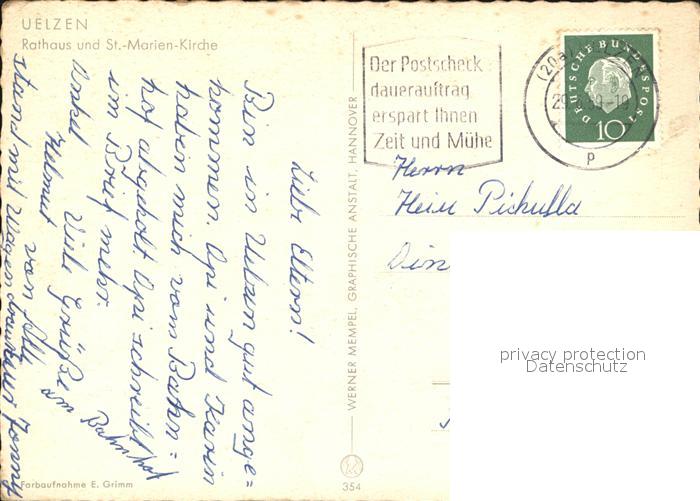 UELZEN
Rathaus und St.-Marien-Kirche
Liebe Eltern!
Bin in Uelzen gut ange=
kommen. Opi und Karin
haben mich vom Bahn=
hof abgeholt. Opi schreibt
im Brief mehr.
Viele Grüße
von
Onkel Helmut
stand mit Wagen
Bahnhof
Farbaufnahme E. Grimm
WERNER MEMPEL, GRAPHISCHE ANSTALT, HANNOVER
354
Der Postscheck
dauerauftrag
erspart Ihnen
Zeit und Mühe
DEUTSCHE BUNDESPOST
10
p
Herrn
Hein Pichulla
Din
privacy protection
Datenschutz